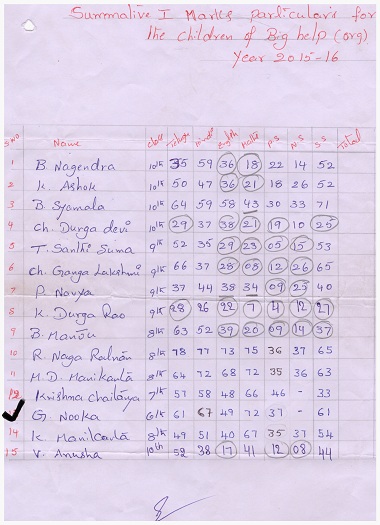 Summative I Marks particulars for
the children of Big help (org)
Year 2015-16
S.NO Name class Telugu Hindi English Maths P.S N.S S.S Total
1 B. Nagendra 10th 35 59 36 18 22 14 52
2 K. Ashok 10th 50 47 36 21 18 26 52
3 B. Syamala 10th 64 59 58 43 30 33 71
4 Ch. Durga devi 10th 29 37 38 21 19 10 25
5 T. Santhi Suma 9th 52 35 29 23 05 15 53
6 Ch. Ganga Lakshmi 9th 66 37 28 08 12 26 65
7 P. Navya 9th 37 44 38 34 09 25 40
8 K. Durga Rao 9th 28 26 22 7 4 12 27
9 B. Manou 8th 63 52 39 20 09 14 37
10 R. Naga Ratnam 8th 78 77 73 75 36 37 65
11 M.D. Manikanta 8th 64 72 68 72 35 36 63
12 Krishna Chaitanya 7th 57 58 48 66 46 - 33
G. Nooka 6th 61 67 49 72 37 - 61
14 K. Manikanta 8th 49 51 40 67 35 37 54
15 V. Anusha 10th 52 38 17 41 12 08 44